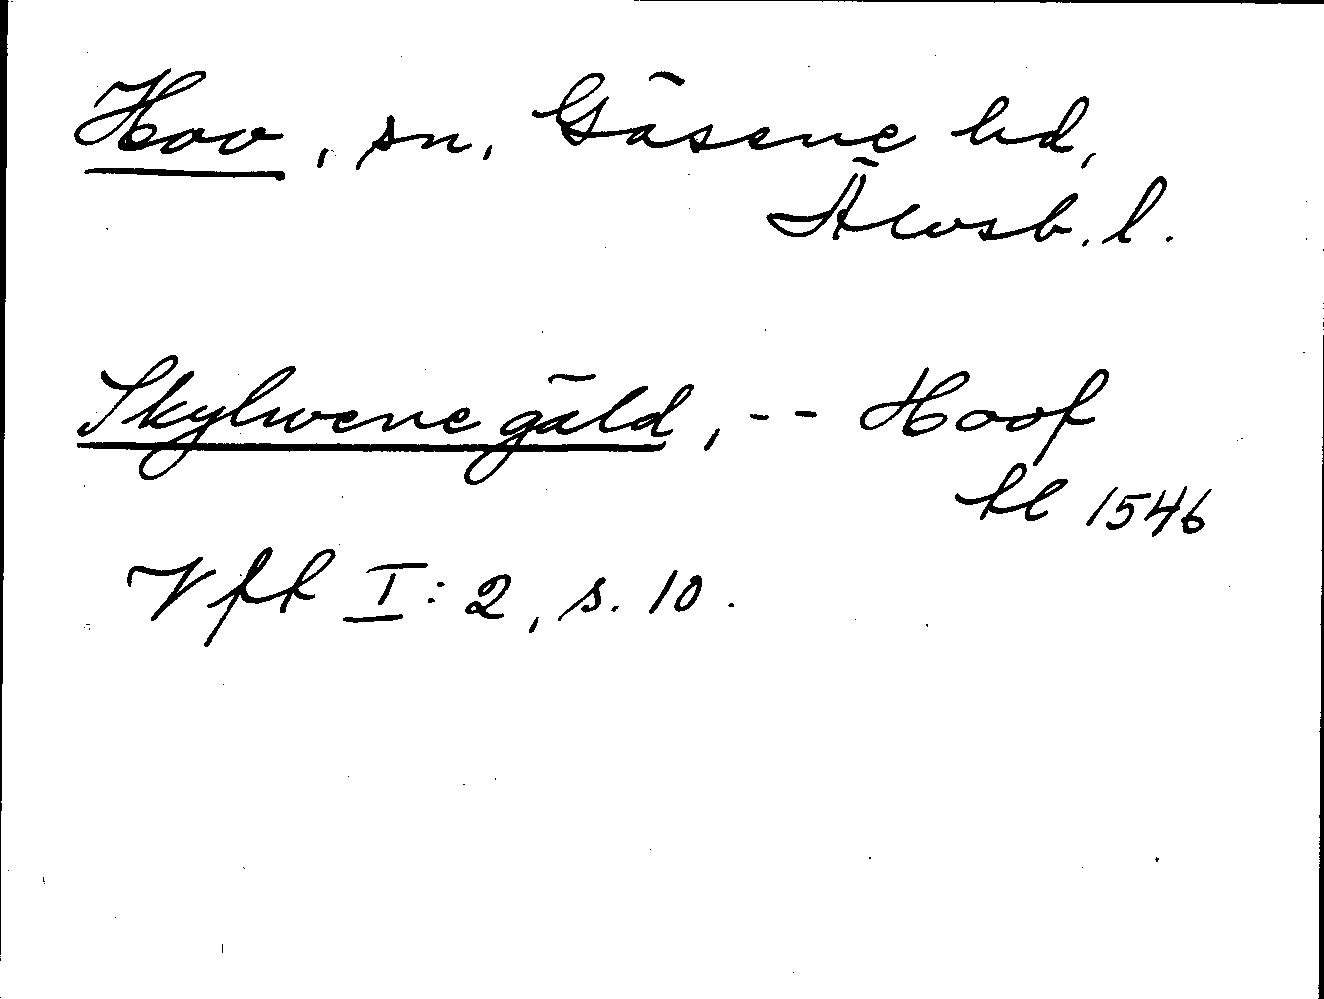 Hov, sn, Gäsene hd,
Älvsb. l.
Skylwene gäld, -- Hoof
kl 1546
Vfk I: 2, s. 10.